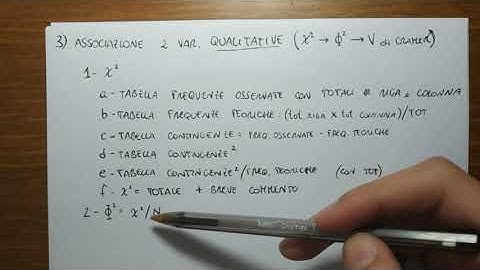 3) ASSOCIAZIONE 2 VAR. QUALITATIVE (χ² → Φ² → V di CRAMER)
1 - χ²
a - TABELLA FREQUENZE OSSERVATE CON TOTALI RIGA e COLONNA
b - TABELLA FREQUENZE TEORICHE (tot. RIGA x tot. COLONNA)/TOT
c - TABELLA CONTINGENZE = FREQ. OSSERVATE - FREQ. TEORICHE
d - TABELLA CONTINGENZE²
e - TABELLA CONTINGENZE²/FREQ. TEORICHE (CON TOT)
f - χ² = TOTALE + BREVE COMMENTO
2 - Φ² = χ²/N